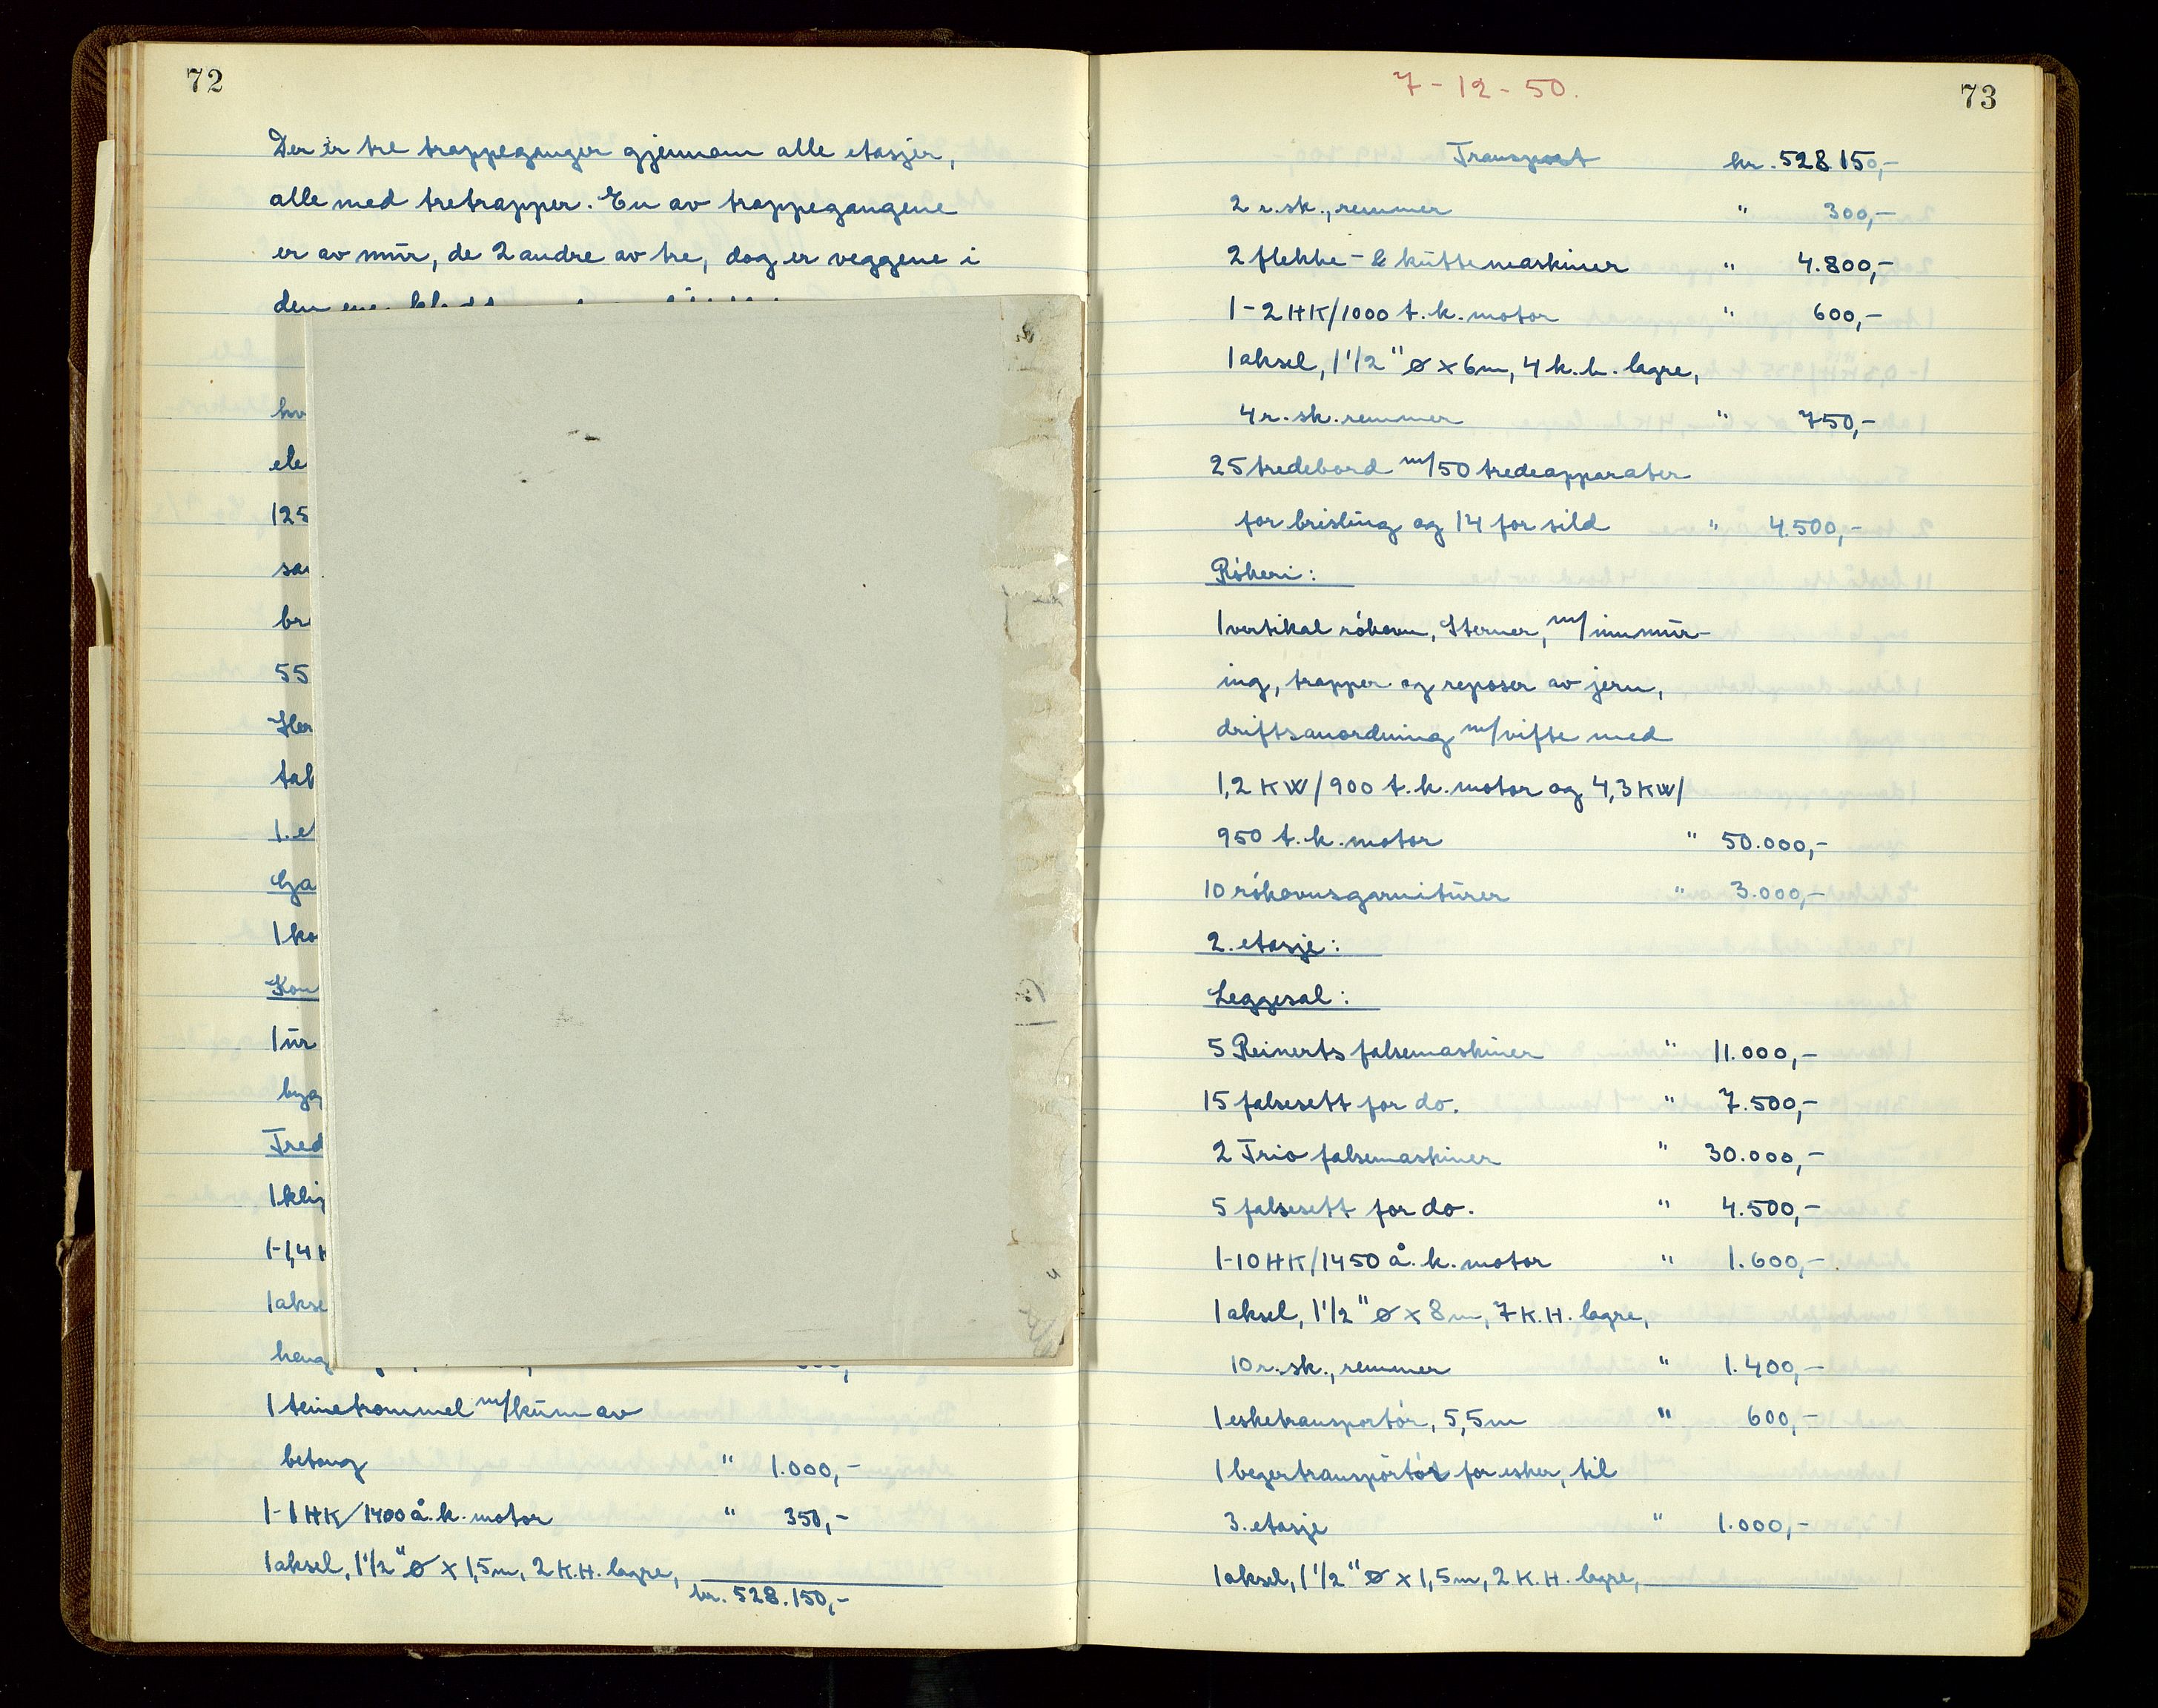 72
Der er tre trappeganger gjennom alle etasjer,
alle med tretrapper. En av trappegangene
er av mur, de 2 andre av tre, dog er veggene i
den ene
125
55
1. e
heng
1 teinetrommel m/kum av
betong " 1.000,-
1-1 HK/1400 å.k. motor " 350,-
1 aksel, 1 1/2" ø x 1,5m, 2 K.H. lagre,
kr. 528.150,-
7-12-50.
73
Transport kr. 528.150,-
2 r.sk., remmer " 300,-
2 flekke- & kuttemaskiner " 4.800,-
1-2 HK/1000 t.k. motor " 600,-
1 aksel, 1 1/2" ø x 6m, 4 k.h. lagre,
4 r.sk. remmer " 750,-
25 tredebord m/50 tredeapparater
for brisling og 14 for sild " 4.500,-
Rökeri:
1 vertikal rökovn, Sterner, m/innmur-
ing, trapper og reposer av jern,
driftsanordning m/vifte med
1,2 KW/900 t.k. motor og 4,3 KW/
950 t.k. motor " 50.000,-
10 rökovnsgarniturer " 3.000,-
2. etasje:
Leggesal:
5 Reinerts falsemaskiner " 11.000,-
15 falsesett for do. " 7.500,-
2 Trio falsemaskiner " 30.000,-
5 falsesett for do. " 4.500,-
1-10 HK/1450 å.k. motor " 1.600,-
1 aksel, 1 1/2" ø x 8m, 7 K.H. lagre,
10 r.sk., remmer " 1.400,-
1 esketransportör, 5,5m " 600,-
1 begertransportör for esker, til
3. etasje " 1.000,-
1 aksel, 1 1/2" ø x 1,5m, 2 K.H. lagre,